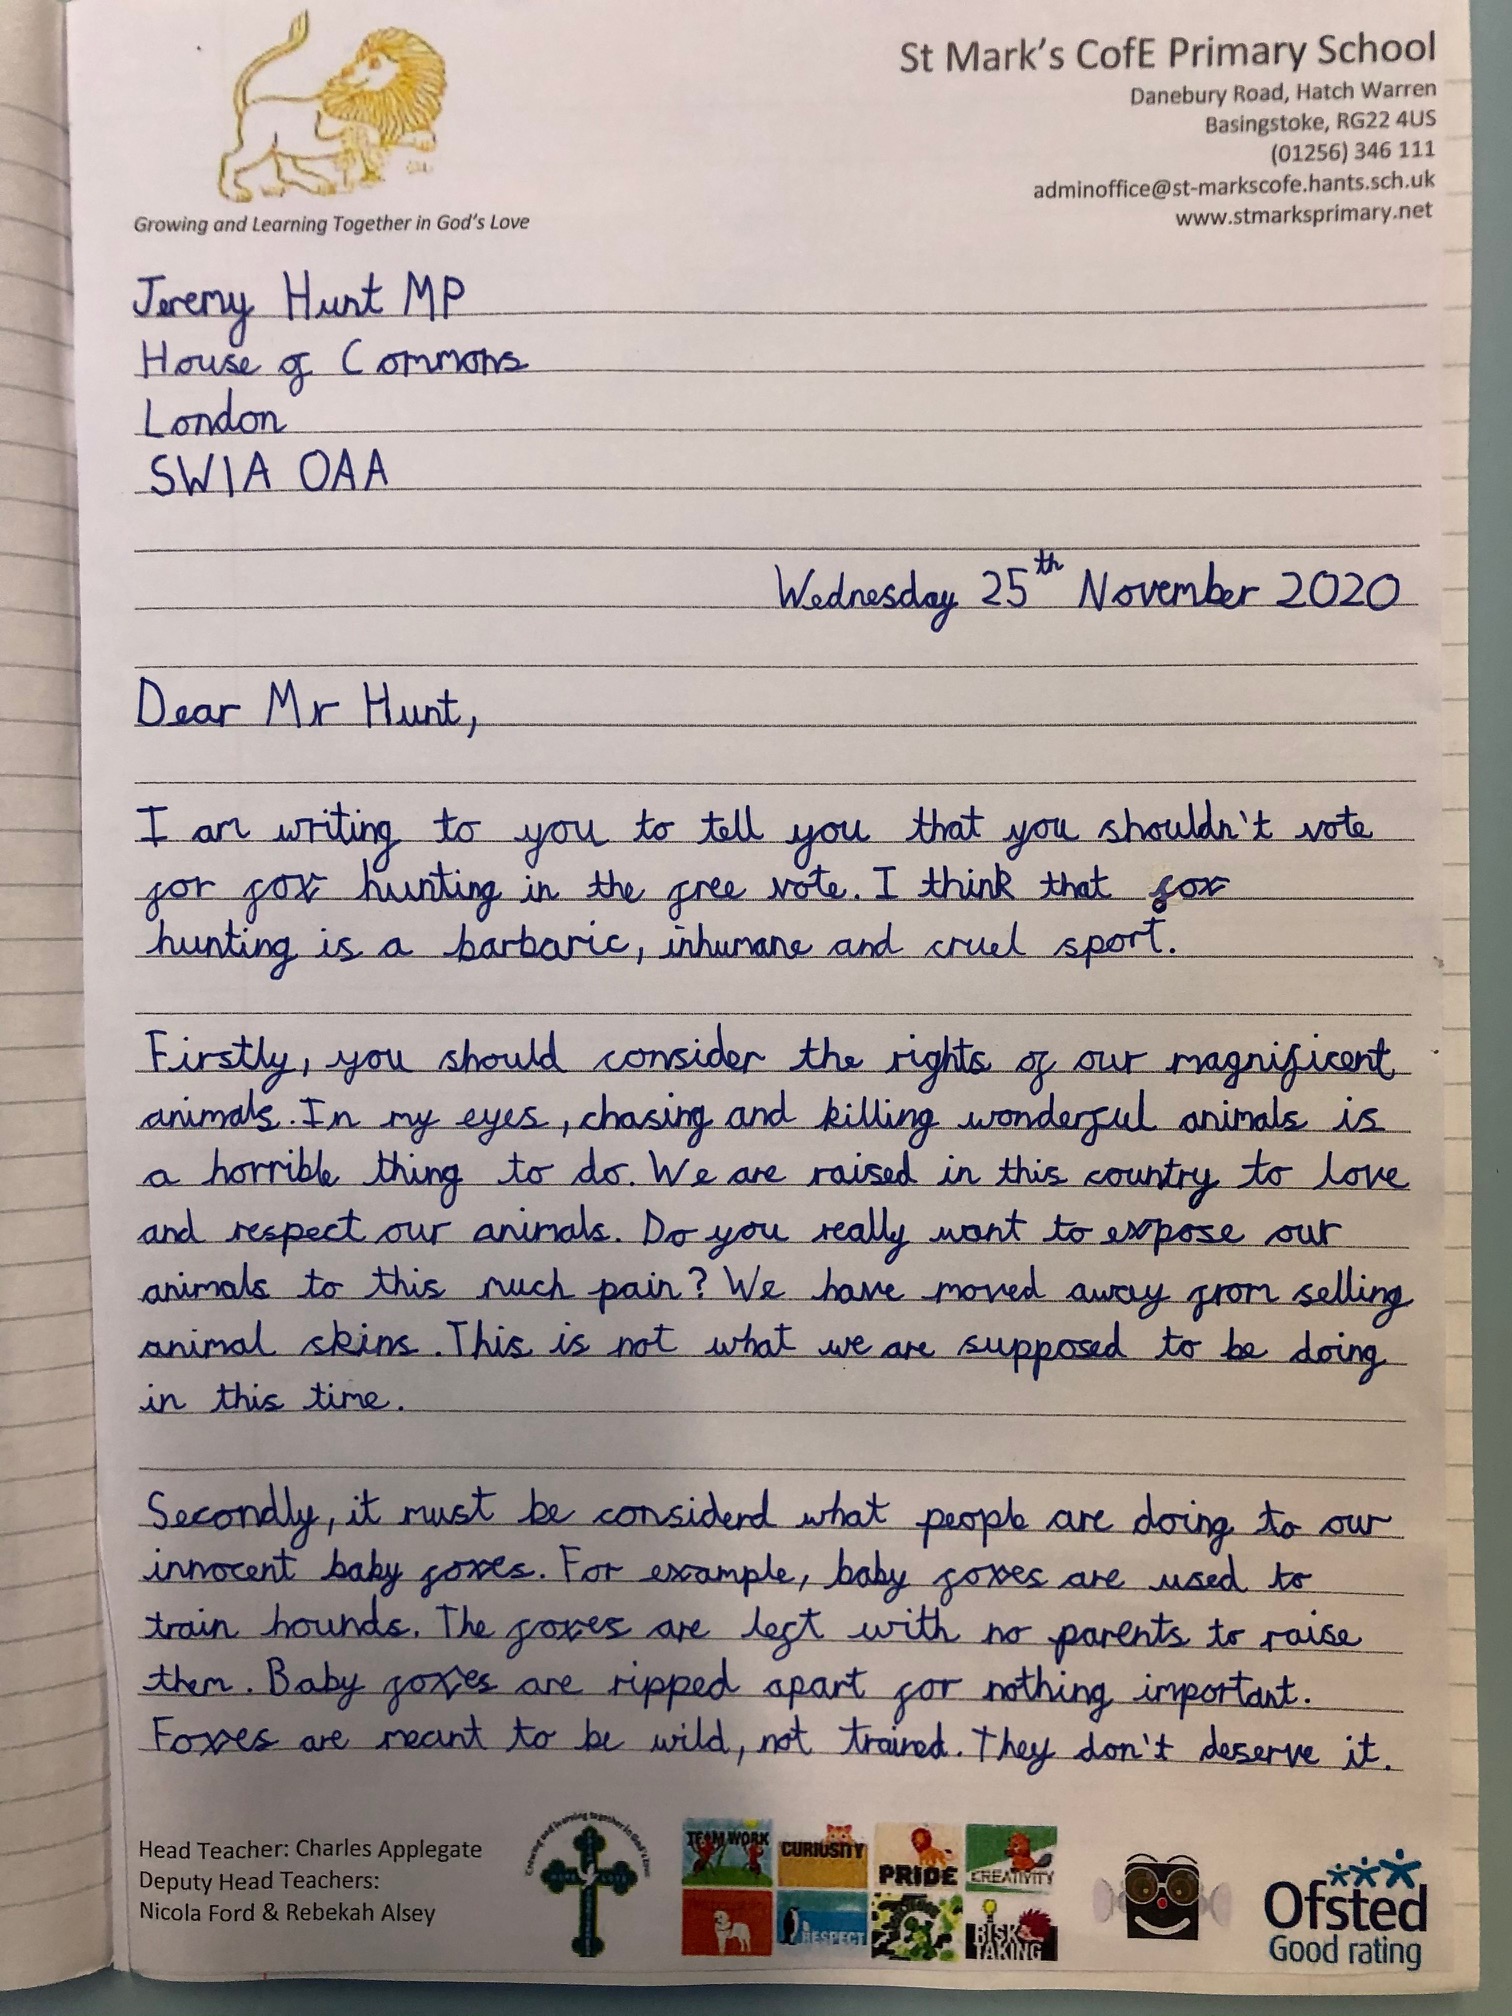 St Mark's CofE Primary School
Danebury Road, Hatch Warren
Basingstoke, RG22 4US
(01256) 346 111
adminoffice@st-markscofe.hants.sch.uk
www.stmarksprimary.net
Growing and Learning Together in God's Love
Jeremy Hunt MP
House of Commons
London
SW1A OAA
Wednesday 25th November 2020
Dear Mr Hunt,
I am writing to you to tell you that you shouldn't vote
for fox hunting in the free vote. I think that fox
hunting is a barbaric, inhumane and cruel sport.
Firstly, you should consider the rights of our magnificent
animals. In my eyes, chasing and killing wonderful animals is
a horrible thing to do. We are raised in this country to love
and respect our animals. Do you really want to expose our
animals to this much pain? We have moved away from selling
animal skins. This is not what we are supposed to be doing
in this time.
Secondly, it must be considerd what people are doing to our
innocent baby foxes. For example, baby foxes are used to
train hounds. The foxes are left with no parents to raise
them. Baby foxes are ripped apart for nothing important.
Foxes are meant to be wild, not trained. They don't deserve it.
Head Teacher: Charles Applegate
Deputy Head Teachers:
Nicola Ford & Rebekah Alsey
Growing and learning together in God's love
TEAM WORK
CURIOSITY
PRIDE
CREATIVITY
RESPECT
RISK
TAKING
Ofsted
Good rating